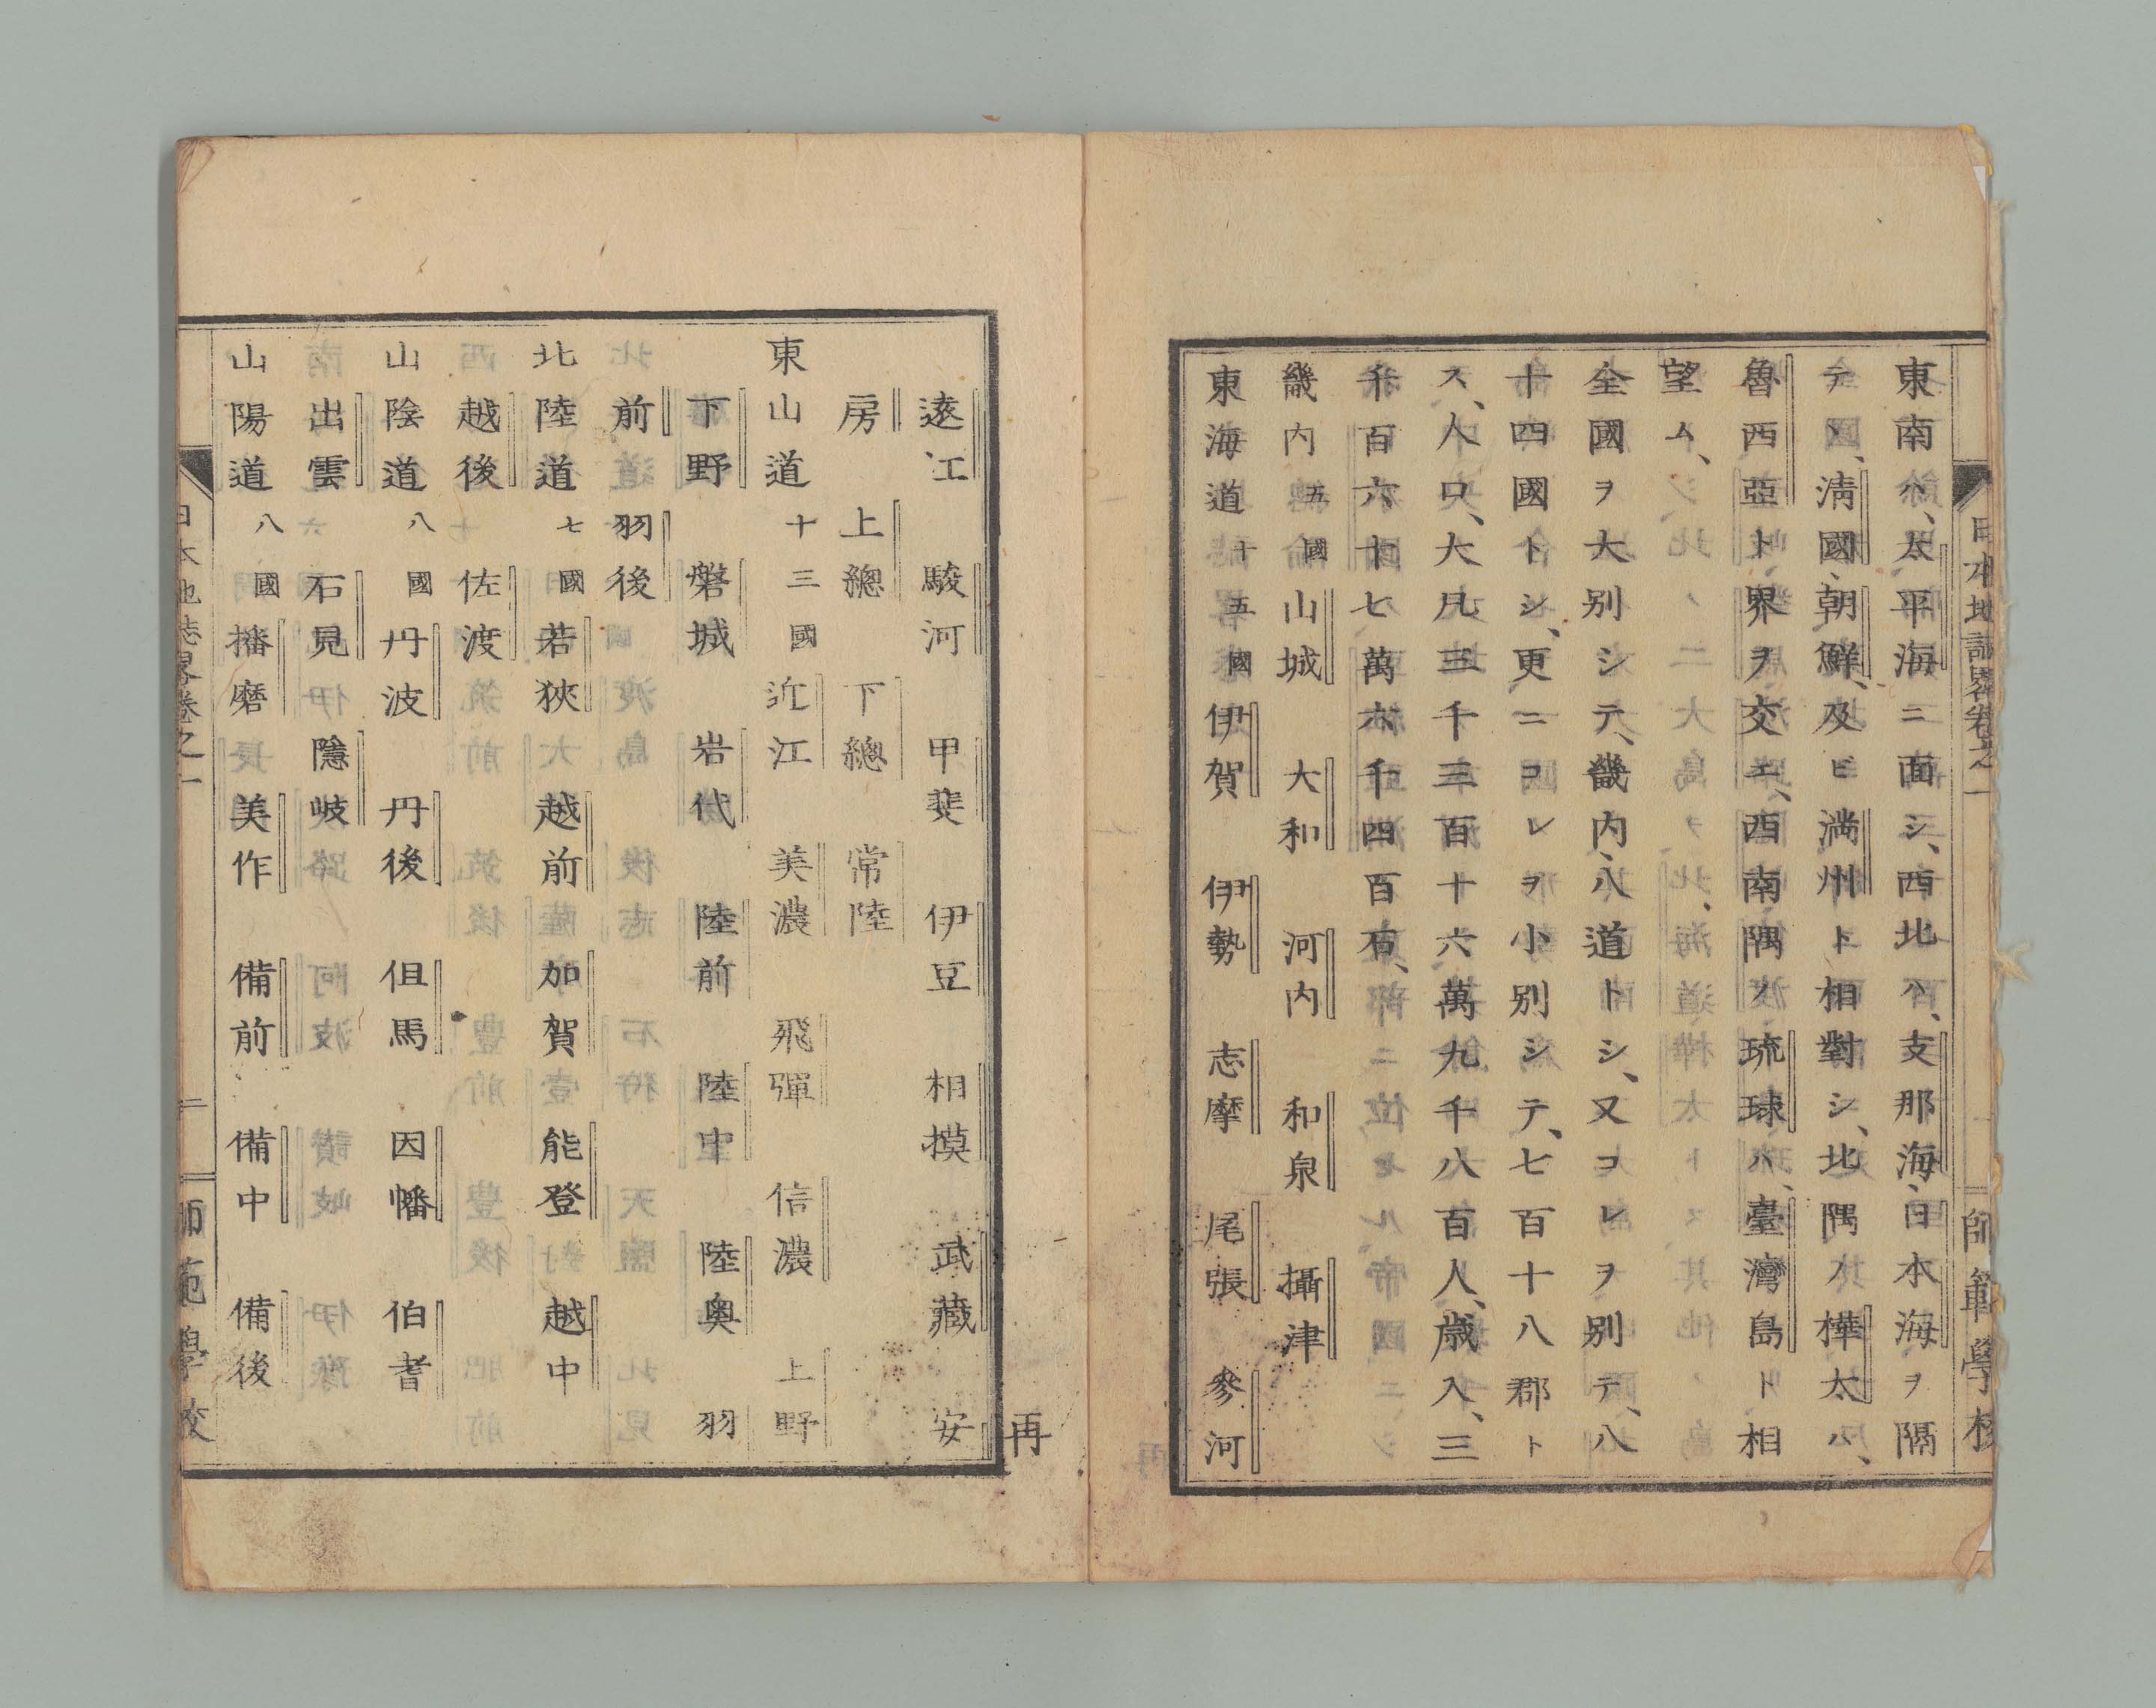 東南ハ、太平海ニ面シ、西北ハ、支那海、日本海ヲ隔
テヽ、淸國、朝鮮、及ビ滿州ト相對シ、北隅ノ樺太ハ、
魯西亞ト界ヲ交エ、西南隅ノ琉球ハ、臺灣島ト相
望ム、
全國ヲ大別シテ、畿内、八道トシ、又コレヲ別テ、八
十四國トシ、更ニコレヲ小別シテ、七百十八郡ト
ス、人口、大凡三千三百十六萬九千八百人、歲入、三
千百六十七萬六千四百石、
畿内五國 山城 大和 河内 和泉 攝津
東海道十五國 伊賀 伊勢 志摩 尾張 參河
日本地誌畧卷之一
師範學校
遠江 駿河 甲斐 伊豆 相摸 武藏 安
房 上總 下總 常陸
東山道十三國 近江 美濃 飛彈 信濃 上野
下野 磐城 岩代 陸前 陸中 陸奥 羽
前 羽後
北陸道七國 若狹 越前 加賀 能登 越中
越後 佐渡
山陰道八國 丹波 丹後 但馬 因幡 伯耆
出雲 石見 隱岐
山陽道八國 播磨 美作 備前 備中 備後
日本地誌畧卷之一
二
師範學校
再